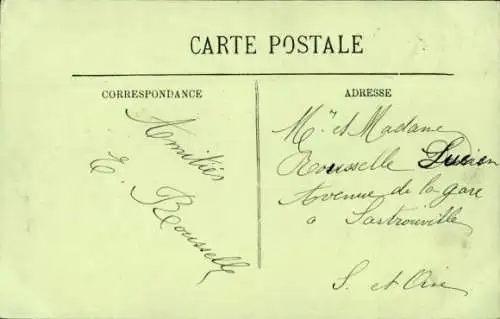 CARTE POSTALE
CORRESPONDANCE
Amitiés
E. Rousselle
ADRESSE
Mr et Madame
Rousselle Lucien
Avenue de la gare
à Sartrouville
S. et Oise